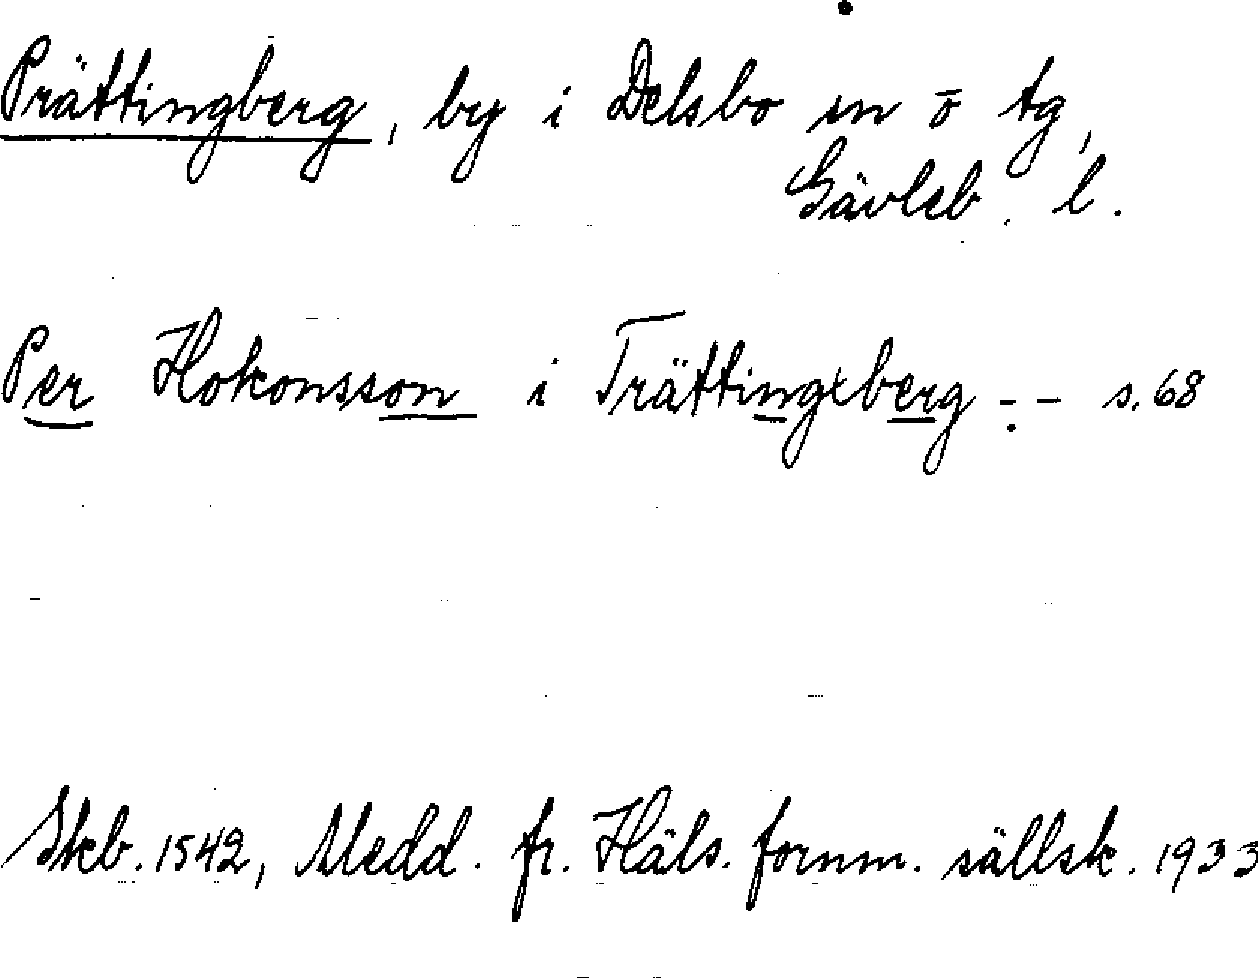 Prättingberg, by i Delsbo sn o tg,
Gävleb. l.
Per Hokonsson i Trättingxberg -.- s. 68
Skb. 1542, Medd. fr. Häls. fornm. sällsk. 1933